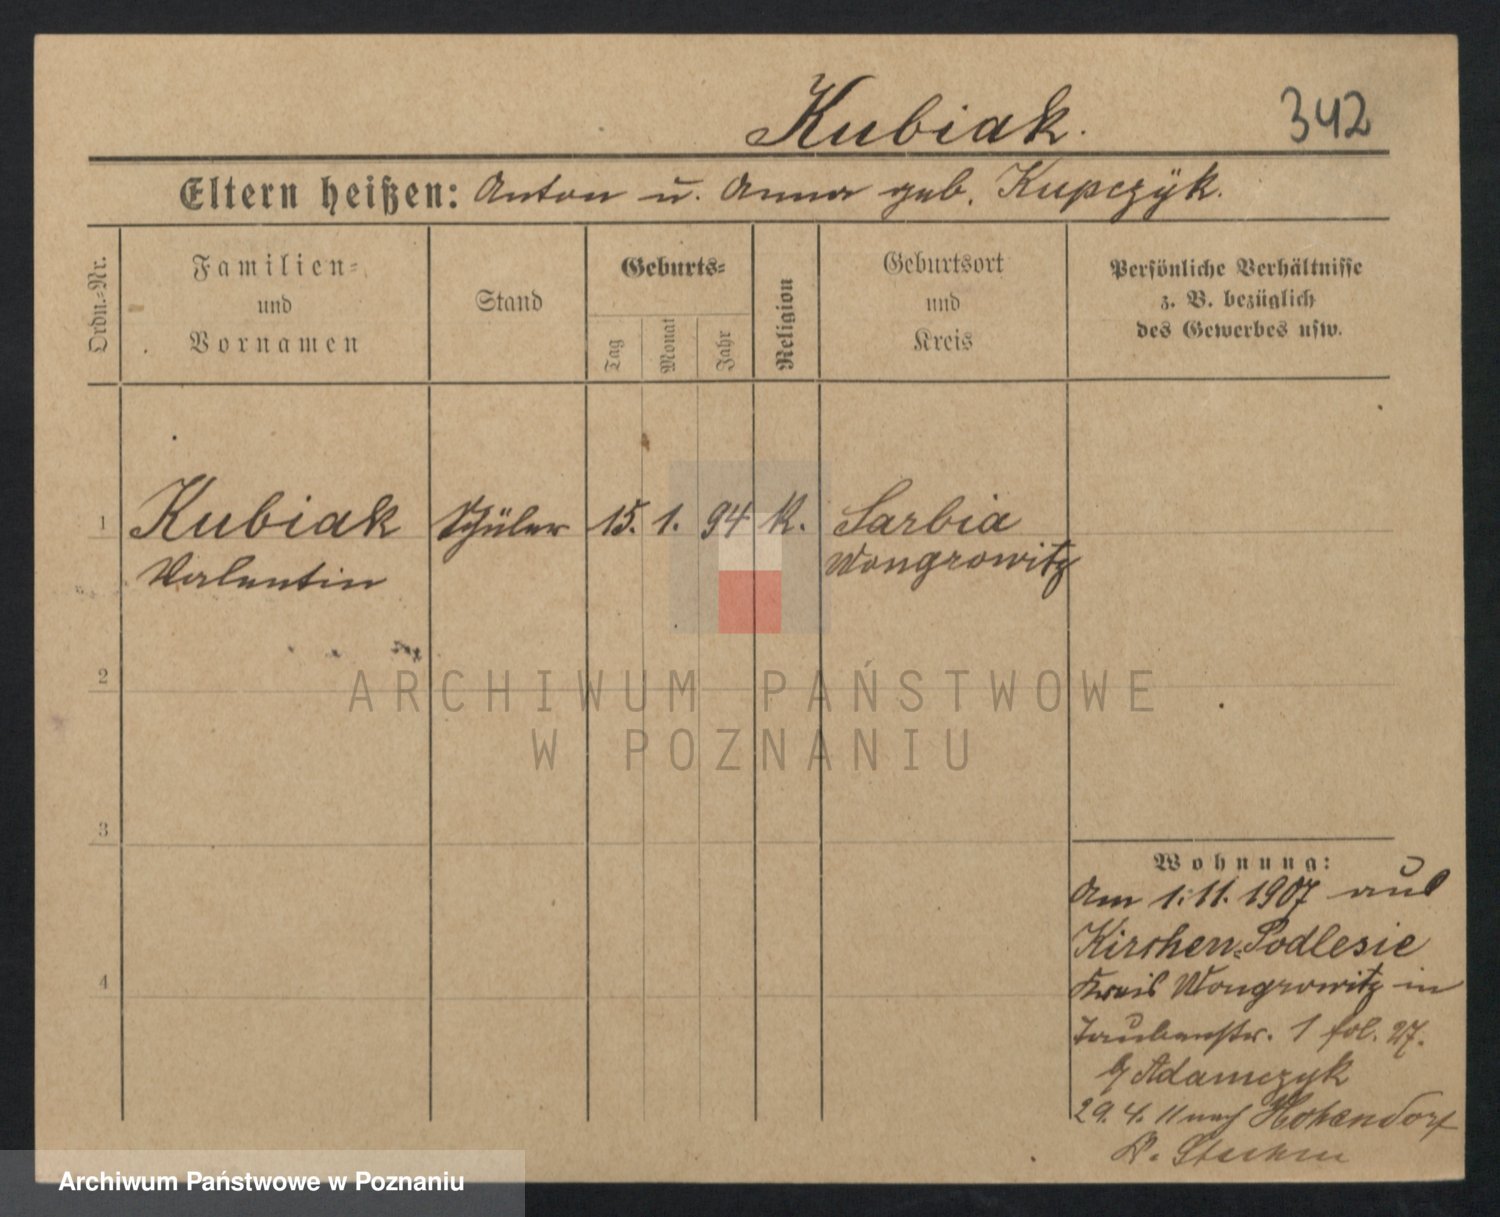 Kubiak.
342
Eltern heißen: Anton u. Anna geb. Kupczÿk.
Ordn.-Nr.
Familien-
und
Vornamen
Stand
Geburts-
Tag
Monat
Jahr
Religion
Geburtsort
und
Kreis
Persönliche Verhältnisse
z. B. bezüglich
des Gewerbes usw.
1 Kubiak Schüler 15. 1. 94 K. Sarbia
Valentin Wongrowitz
2
ARCHIWUM PAŃSTWOWE
W POZNANIU
3
4
Wohnung:
Am 1.11.1907 aus
Kirchen-Podlesie
Kreis Wongrowitz in
Taubenstr. 1 fol. 27.
b/ Adamczyk
29.4.11 nach Hohendorf